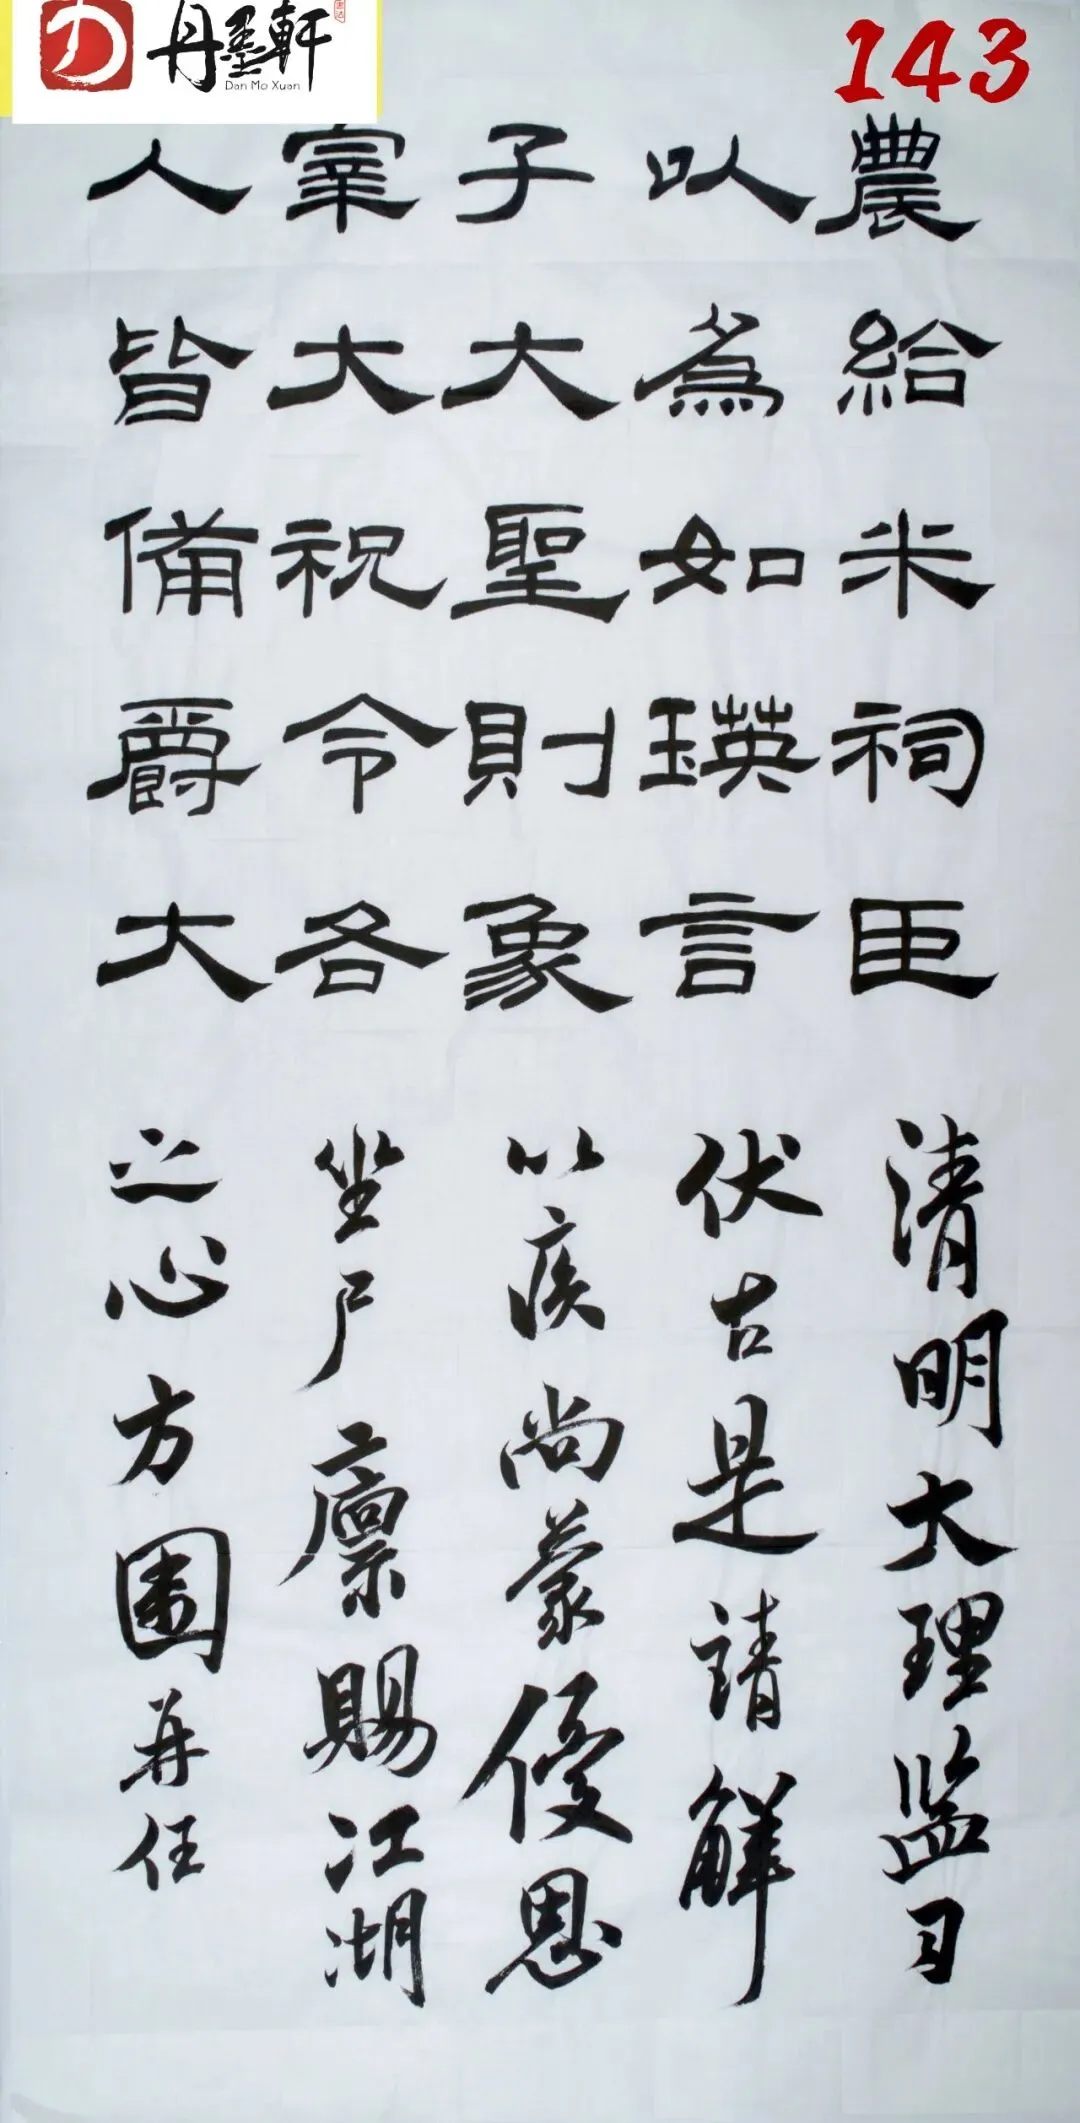 丹墨軒
Dan Mo Xuan
143
農給米祠臣
以為如瑛言
子大聖則象
宰大祝令各
人皆備爵大
清明大理监司
伏古是請解
以疾尚蒙優恩
坐尸廪賜江湖
之心方圉并任